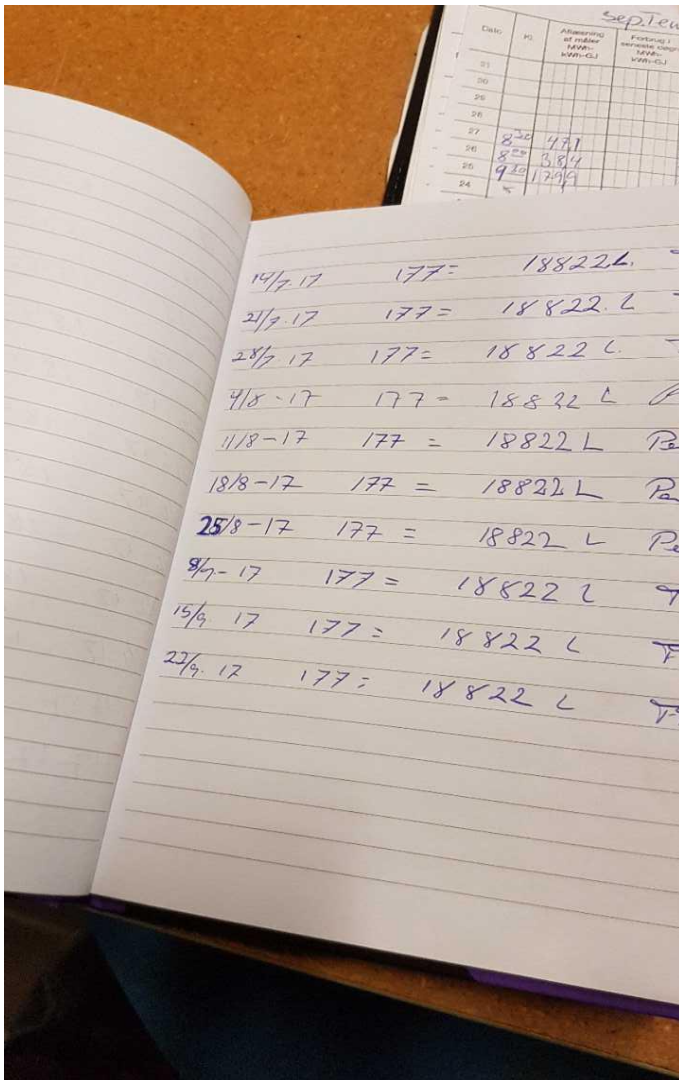 Dato Kl. Aflæsning af måler MWh- kWh-GJ Forbrug i seneste døgn MWh- kWh-GJ
31
30
29
28
27
26 8 30 471
25 8 00 384
24 9 30 1799
14/7.17 177= 18822L.
21/7.17 177= 18822.L
28/7 17 177= 18822 L.
4/8-17 177= 18822 L
11/8-17 177 = 18822 L
18/8-17 177 = 18822 L
25/8-17 177 = 18822 L
8/9-17 177= 18822 L
15/9 17 177= 18822 L
22/9.17 177= 18822 L